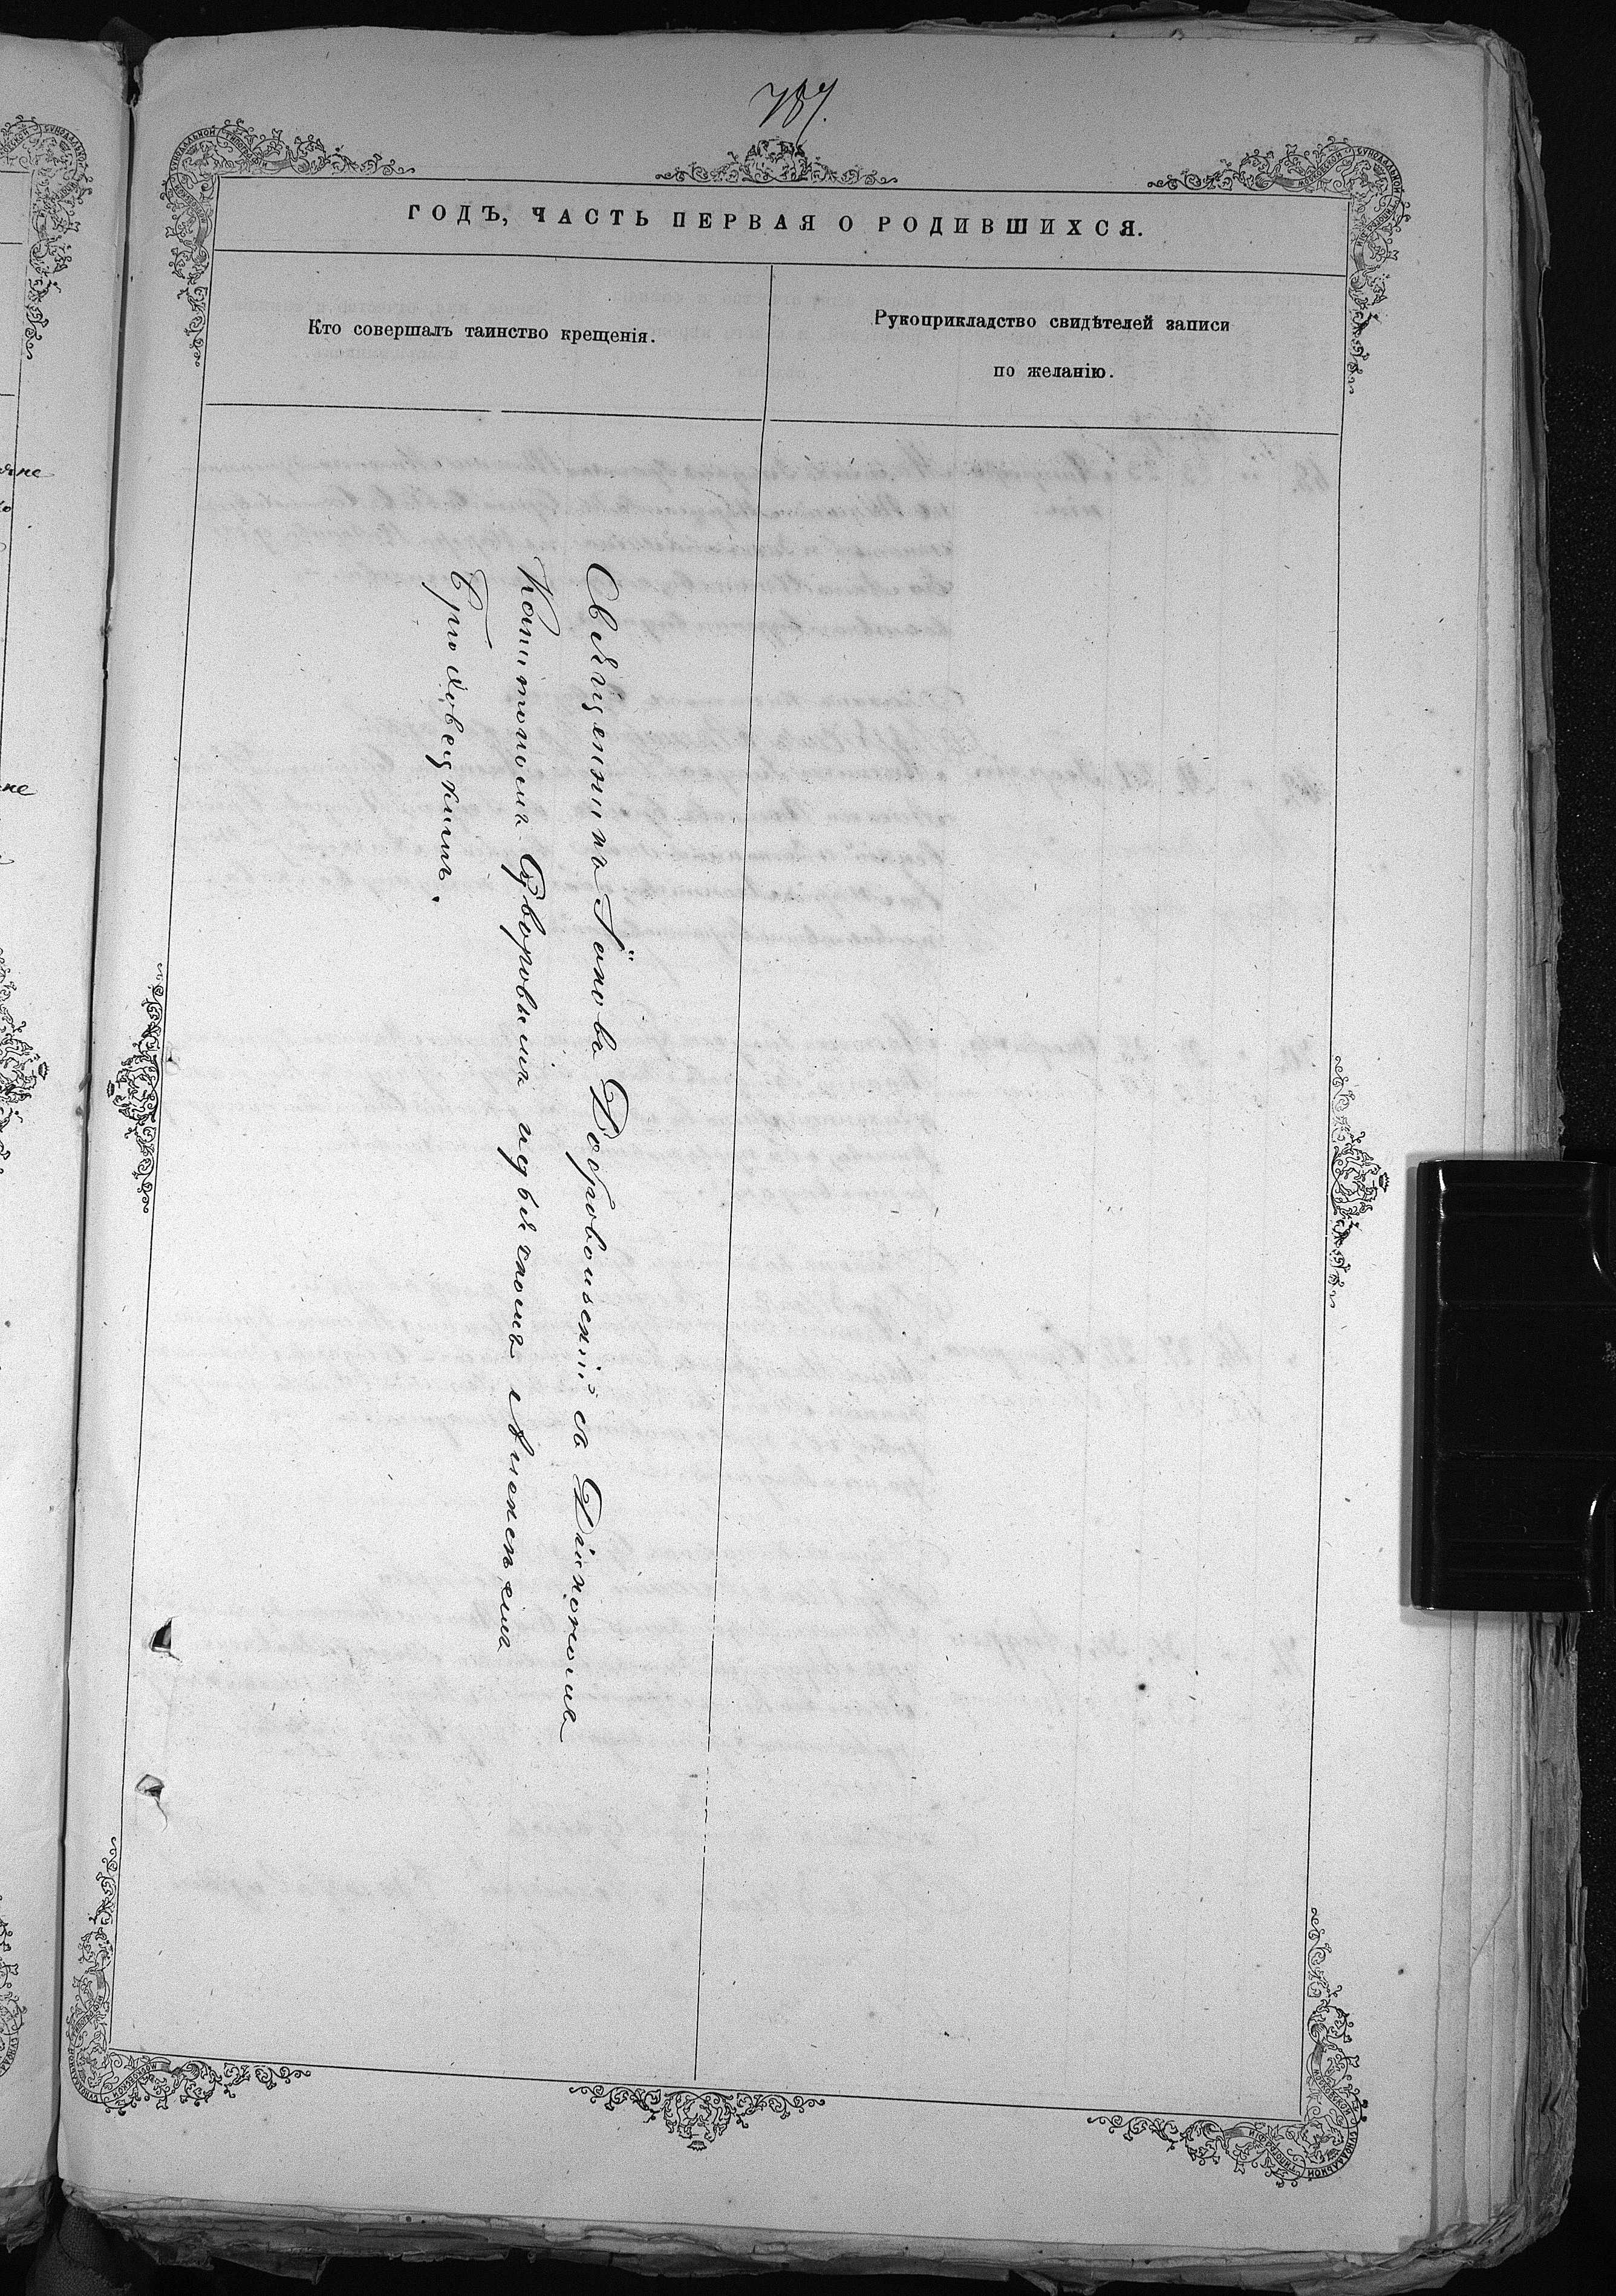 787.
ГОДЪ, ЧАСТЬ ПЕРВАЯ О РОДИВШИХСЯ.
Кто совершалъ таинство крещенія.
Рукоприкладство свидѣтелей записи
по желанію.
Священникъ Іаковъ Добровольскій съ Діакономъ
Капитономъ Суворовымъ и дьячкомъ Алексѣемъ